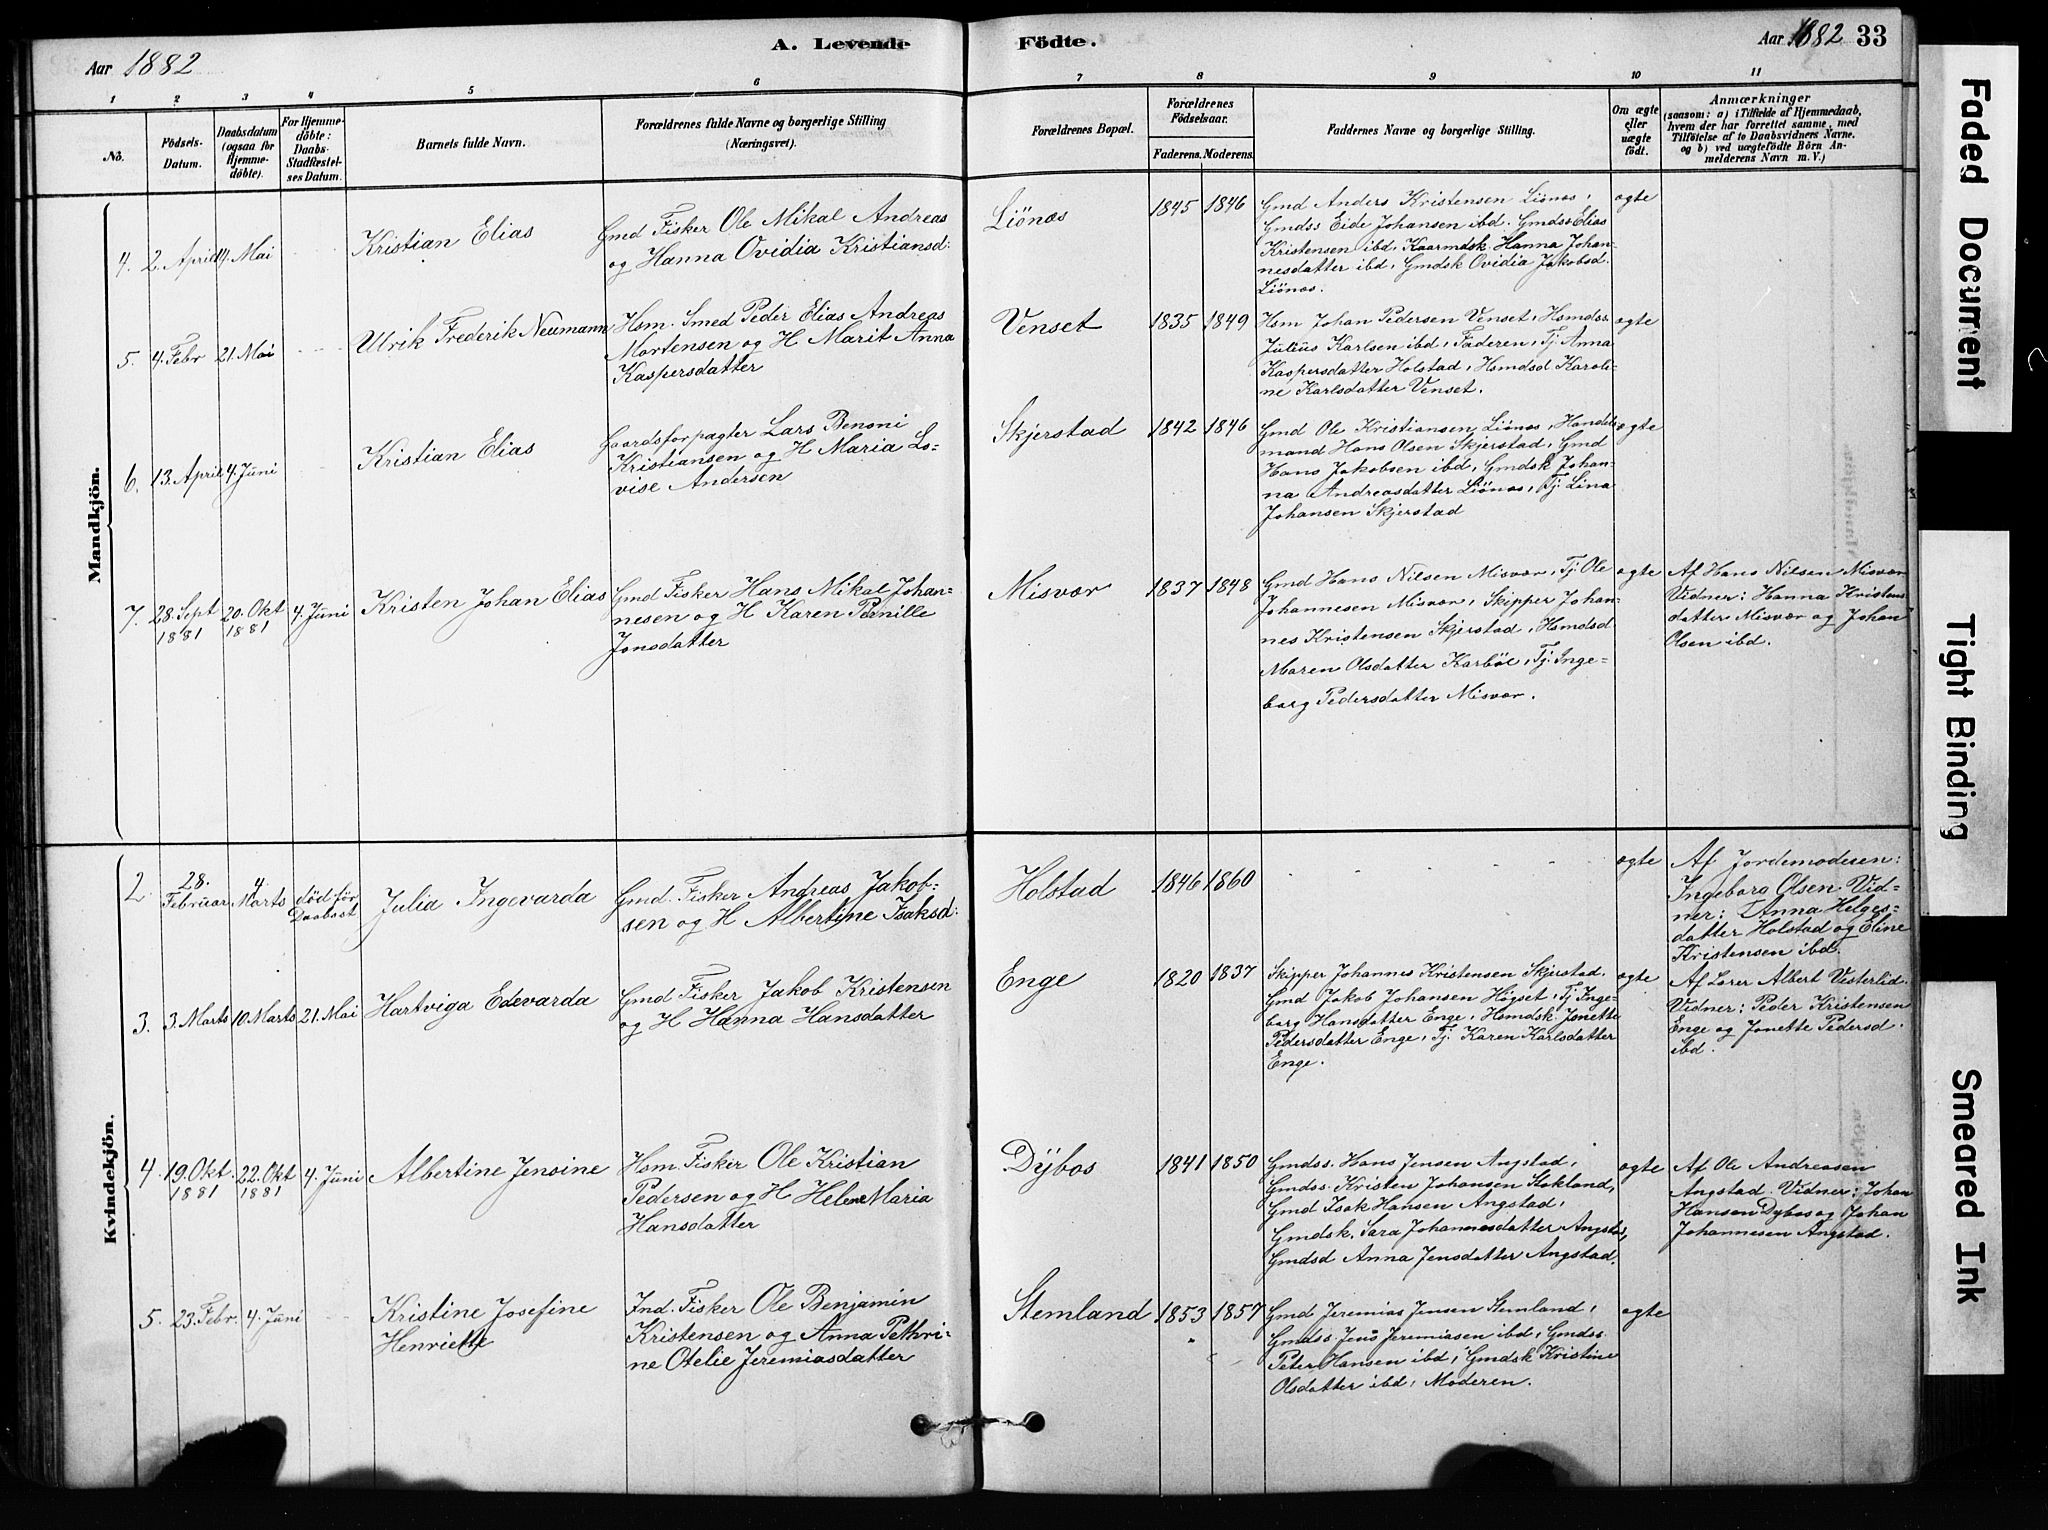 Aar 1882
A. Levende
Födte.
Aar 1882 33
1 2 3 4 5 6 7 8 9 10 11
Nô.
Födsels-
Datum.
Daabsdatum
(ogsaa for
Hjemme-
döbte).
For Hjemme-
döbte:
Daabs-
Stadfæstel-
ses Datum.
Barnets fulde Navn.
Forældrenes fulde Navne og borgerlige Stilling
(Næringsvei).
Forældrenes Bopæl.
Forældrenes
Födselsaar.
Faderens. Moderens.
Faddernes Navne og borgerlige Stilling.
Om ægte
eller
uægte
födt.
Anmærkninger
(saasom: a) i Tilfælde af Hjemmedaab,
hvem der har forrettet samme, med
Tilföielse af to Daabsvidners Navne.
og b) ved uægtefödte Börn An-
melderens Navn m. V.)
Mandkjön.
4. 2 April 4. Mai
Kristian Elias
Gmd Fisker Ole Mikal Andreas
og Hanna Ovidia Kristiansd:
Liönæs
1845 1846
Gmd Anders Kristensen Liönæs,
Gmdss Eide Johansen ibd. Gmdss Elias
Kristensen ibd, Kaarmdsk. Hanna Johan-
nesdatter ibd, Gmdsk Ovidia Jakobsd.
Liönæs.
ægte
5. 4. Febr 21. Mai
Ulrik Frederik Neumann
Hsm. Smed Peder Elias Andreas
Mortensen og H Marit Anna
Kaspersdatter
Venset
1835 1849
Hsm Johan Pedersen Venset, Hsmdss.
Julius Karlsen ibd, Faderen, Tj. Anna
Kaspersdatter Holstad, Hsmdsd Karoli-
ne Karlsdatter Venset.
ægte
6. 13. April 4. Juni
Kristian Elias
Gaardsforpagter Lars Benoni
Kristiansen og H Maria Lo-
vise Andersen
Skjerstad
1842 1846
Gmd Ole Kristiansen Liönæs, Handels-
mand Hans Olsen Skjerstad, Gmd
Hans Jakobsen ibd, Gmdsk Johan-
na Andreasdatter Liönæs, Tj. Lina
Johansen Skjerstad
ægte
7. 28. Sept 1881 20. Okt 1881 4. Juni
Kristen Johan Elias
Gmd Fisker Hans Mikal Johan-
nesen og H Karen Pernille
Jonsdatter
Misvær
1837 1848
Gmd Hans Nilsen Misvær, Tj. Ole
Johannesen Misvær, Skipper Johan-
nes Kristensen Skjerstad, Hsmdsd
Maren Olsdatter Karböl, Tj. Inge-
borg Pedersdatter Misvær.
ægte
Af Hans Nilsen Misvær
Vidner: Hanna Kristens-
datter Misvær og Johan
Olsen ibd.
Kvindekjön.
2 28. Februar 4. Marts död för Daabsst
Julia Ingevarda
Gmd. Fisker Andreas Jakob-
sen og H Albertine Isaksd:
Holstad
1846 1860
ægte
Af Jordemoderen:
Ingeborg Olsen. Vid-
ner: Anna Helges-
datter Holstad og Eline
Kristensen ibd.
3. 3 Marts 10 Marts 21. Mai
Hartviga Edevarda
Gmd Fisker Jakob Kristensen
og H Hanna Hansdatter
Enge
1820 1837
Skipper Johannes Kristensen Skjerstad.
Gmd Jakob Johansen Högset, Tj Inge-
borg Hansdatter Enge, Hsmdsk Jonette
Pedersdatter Enge, Tj. Karen Karlsdatter
Enge.
ægte
Af Lærer Albert Vesterlid.
Vidner: Peder Kristensen
Enge og Jonette Pedersd.
ibd.
4. 19. Okt. 1881 22. Okt 1881 4. Juni
Albertine Jensine
Hsm. Fisker Ole Kristian
Pedersen og H Helene Maria
Hansdatter
Dybos
1841 1850
Gmdss. Hans Jensen Angstad,
Gmdss. Kristen Johansen Stokland,
Gmd Isak Hansen Angstad,
Gmdsk. Sara Johannesdatter Angstad,
Gmdsd Anna Jensdatter Angstad.
ægte
Af Ole Andreasen
Angstad. Vidner: Johan
Hansen Dybos og Johan
Johannesen Angstad.
5. 23. Febr. 4. Juni
Kristine Josefine
Henriette
Ind. Fisker Ole Benjamin
Kristensen og Anna Pethri-
ne Otelie Jeremiasdatter
Stemland
1853 1857
Gmd Jeremias Jensen Stemland,
Gmdss. Jens Jeremiasen ibd, Gmdss.
Peter Hansen ibd, Gmdsk Kristine
Olsdatter ibd, Moderen.
ægte
Faded Document
Tight Binding
Smeared Ink